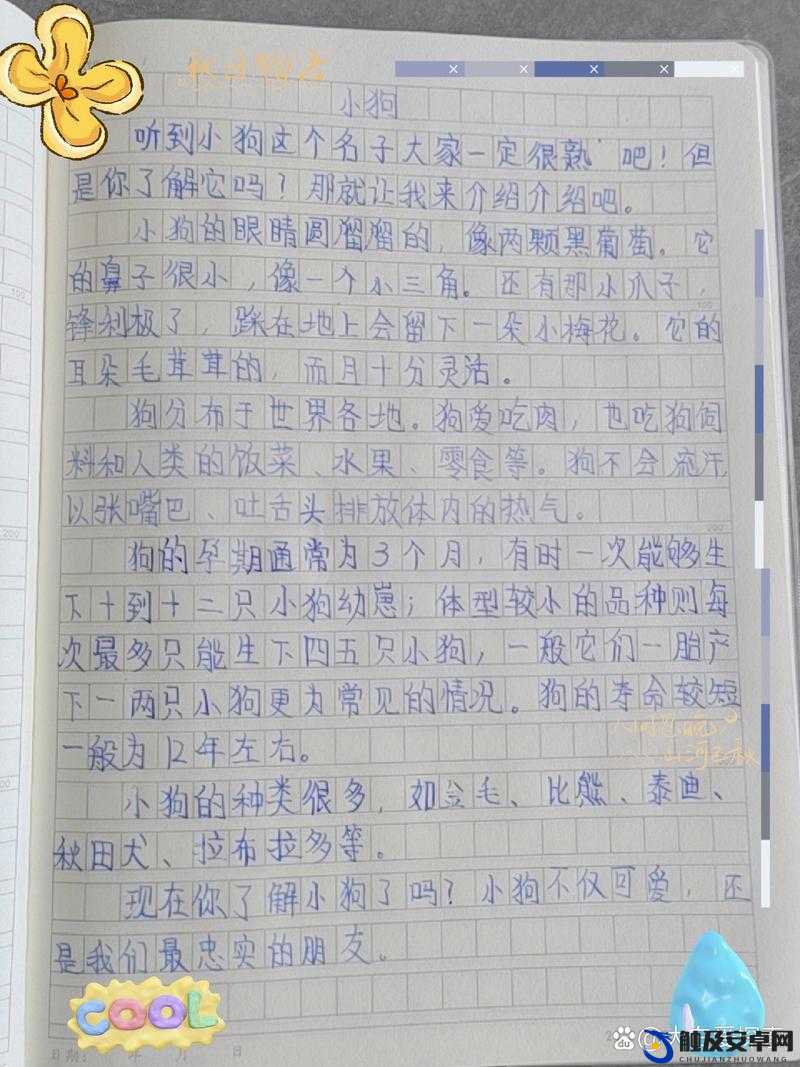 小狗
听到小狗这个名子大家一定很熟吧！但
是你了解它吗？那就让我来介绍介绍吧。
小狗的眼睛圆溜溜的，像两颗黑葡萄。它
的鼻子很小，像一个小三角。还有那小爪子，
锋利极了，踩在地上会留下一朵小梅花。它的
耳朵毛茸茸的，而且十分灵活。
狗分布于世界各地。狗爱吃肉，也吃狗饲
料和人类的饭菜、水果、零食等。狗不会流汗，
以张嘴巴、吐舌头排放体内的热气。
狗的孕期通常为3个月，有时一次能够生
下十到十二只小狗幼崽；体型较小的品种则每
次最多只能生下四五只小狗，一般它们一胎产
下一两只小狗更为常见的情况。狗的寿命较短
一般为12年左右。
小狗的种类很多，如金毛、比熊、泰迪、
秋田犬、拉布拉多等。
现在你了解小狗了吗？小狗不仅可爱，还
是我们最忠实的朋友。
COOL
日期： 年 月 日
触及安卓网
CHUJIANZHUOWANG